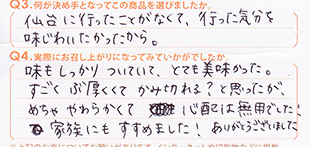 Q3.何が決め手となってこの商品を選びましたか
仙台に行ったことがなくて、行った気分を
味じわいたかったから。
Q4.実際にお召し上がりになってみていかがでしたか
味もしっかりついていて、とても美味かった。
すごくぶ厚くてかみ切れる?と思ったが、
めちゃやわらかくて心配は無用でした!
家族にもすすめました!ありがとうございました